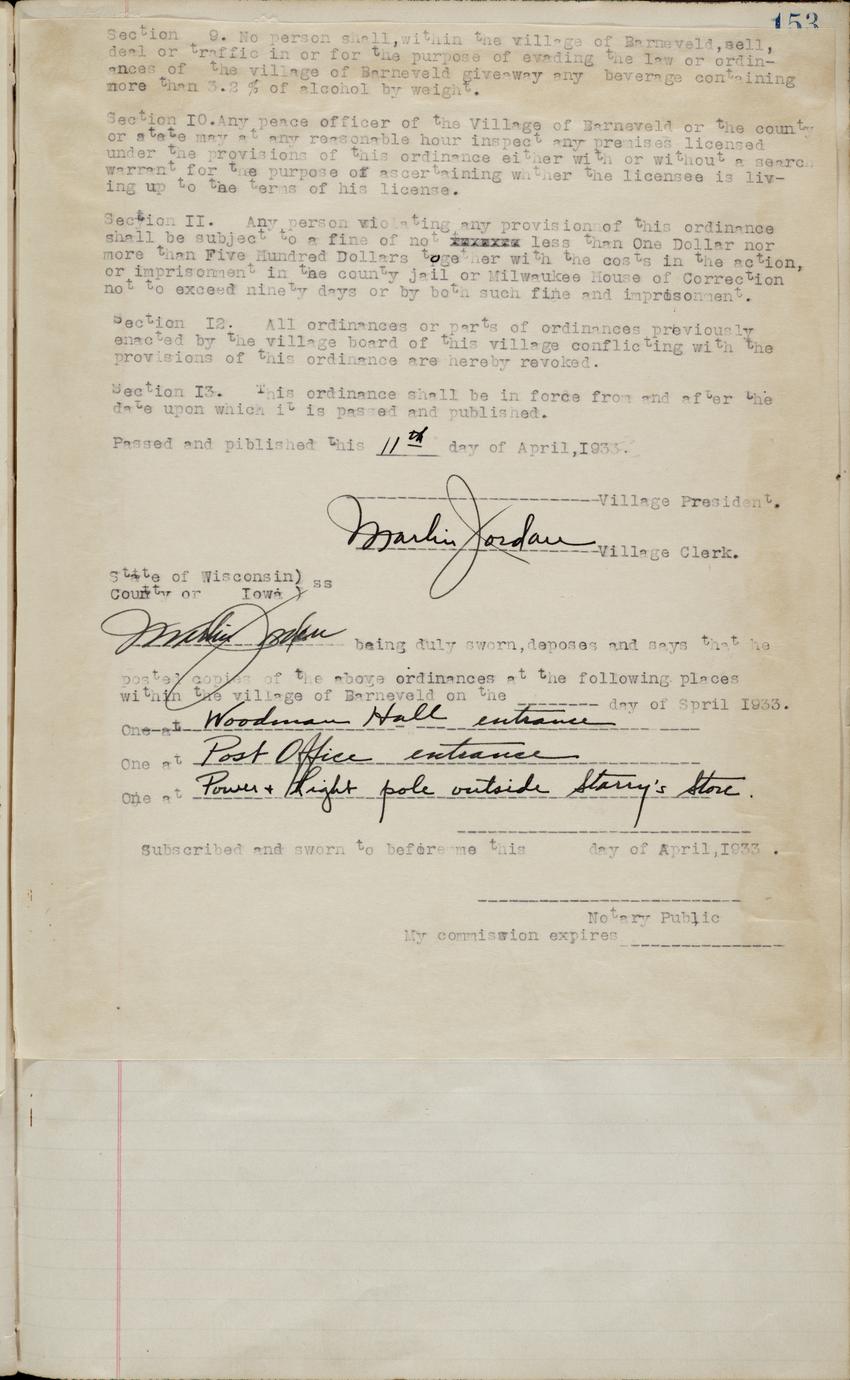 153
Section 9. No person shall,within the village of Barneveld,sell,
deal or traffic in or for the purpose of evading the law or ordin-
ances of the village of Barneveld giveaway any beverage containing
more than 3.2 % of alcohol by weight.
Section I0.Any peace officer of the Village of Barneveld or the county
or state may at any reasonable hour inspect any premises licensed
under the provisions of this ordinance either with or without a search
warrant for the purpose of ascertaining whther the licensee is liv-
ing up to the terms of his license.
Section II. Any person violating any provision of this ordinance
shall be subject to a fine of not xxxxxxx less than One Dollar nor
more than Five Hundred Dollars together with the costs in the action,
or imprisonment in the county jail or Milwaukee House of Correction
not to exceed ninety days or by both such fine and imprisonment.
Section I2. All ordinances or parts of ordinances previously
enacted by the village board of this village conflicting with the
provisions of this ordinance are hereby revoked.
Section I3. This ordinance shall be in force from and after the
date upon which it is passed and published.
Passed and piblished this 11th day of April,I933.
Village President.
Marlin Jordan Village Clerk.
State of Wisconsin)
County or Iowa ) ss
Marlin Jordan being duly sworn,deposes and says that he
posted copies of the above ordinances at the following places
within the village of Barneveld on the ------- day of Spril I933.
One at Woodman Hall entrance
One at Post Office entrance
One at Power & Light pole outside Starry's Store.
Subscribed and sworn to before me this day of April,I933 .
Notary Public
My commission expires